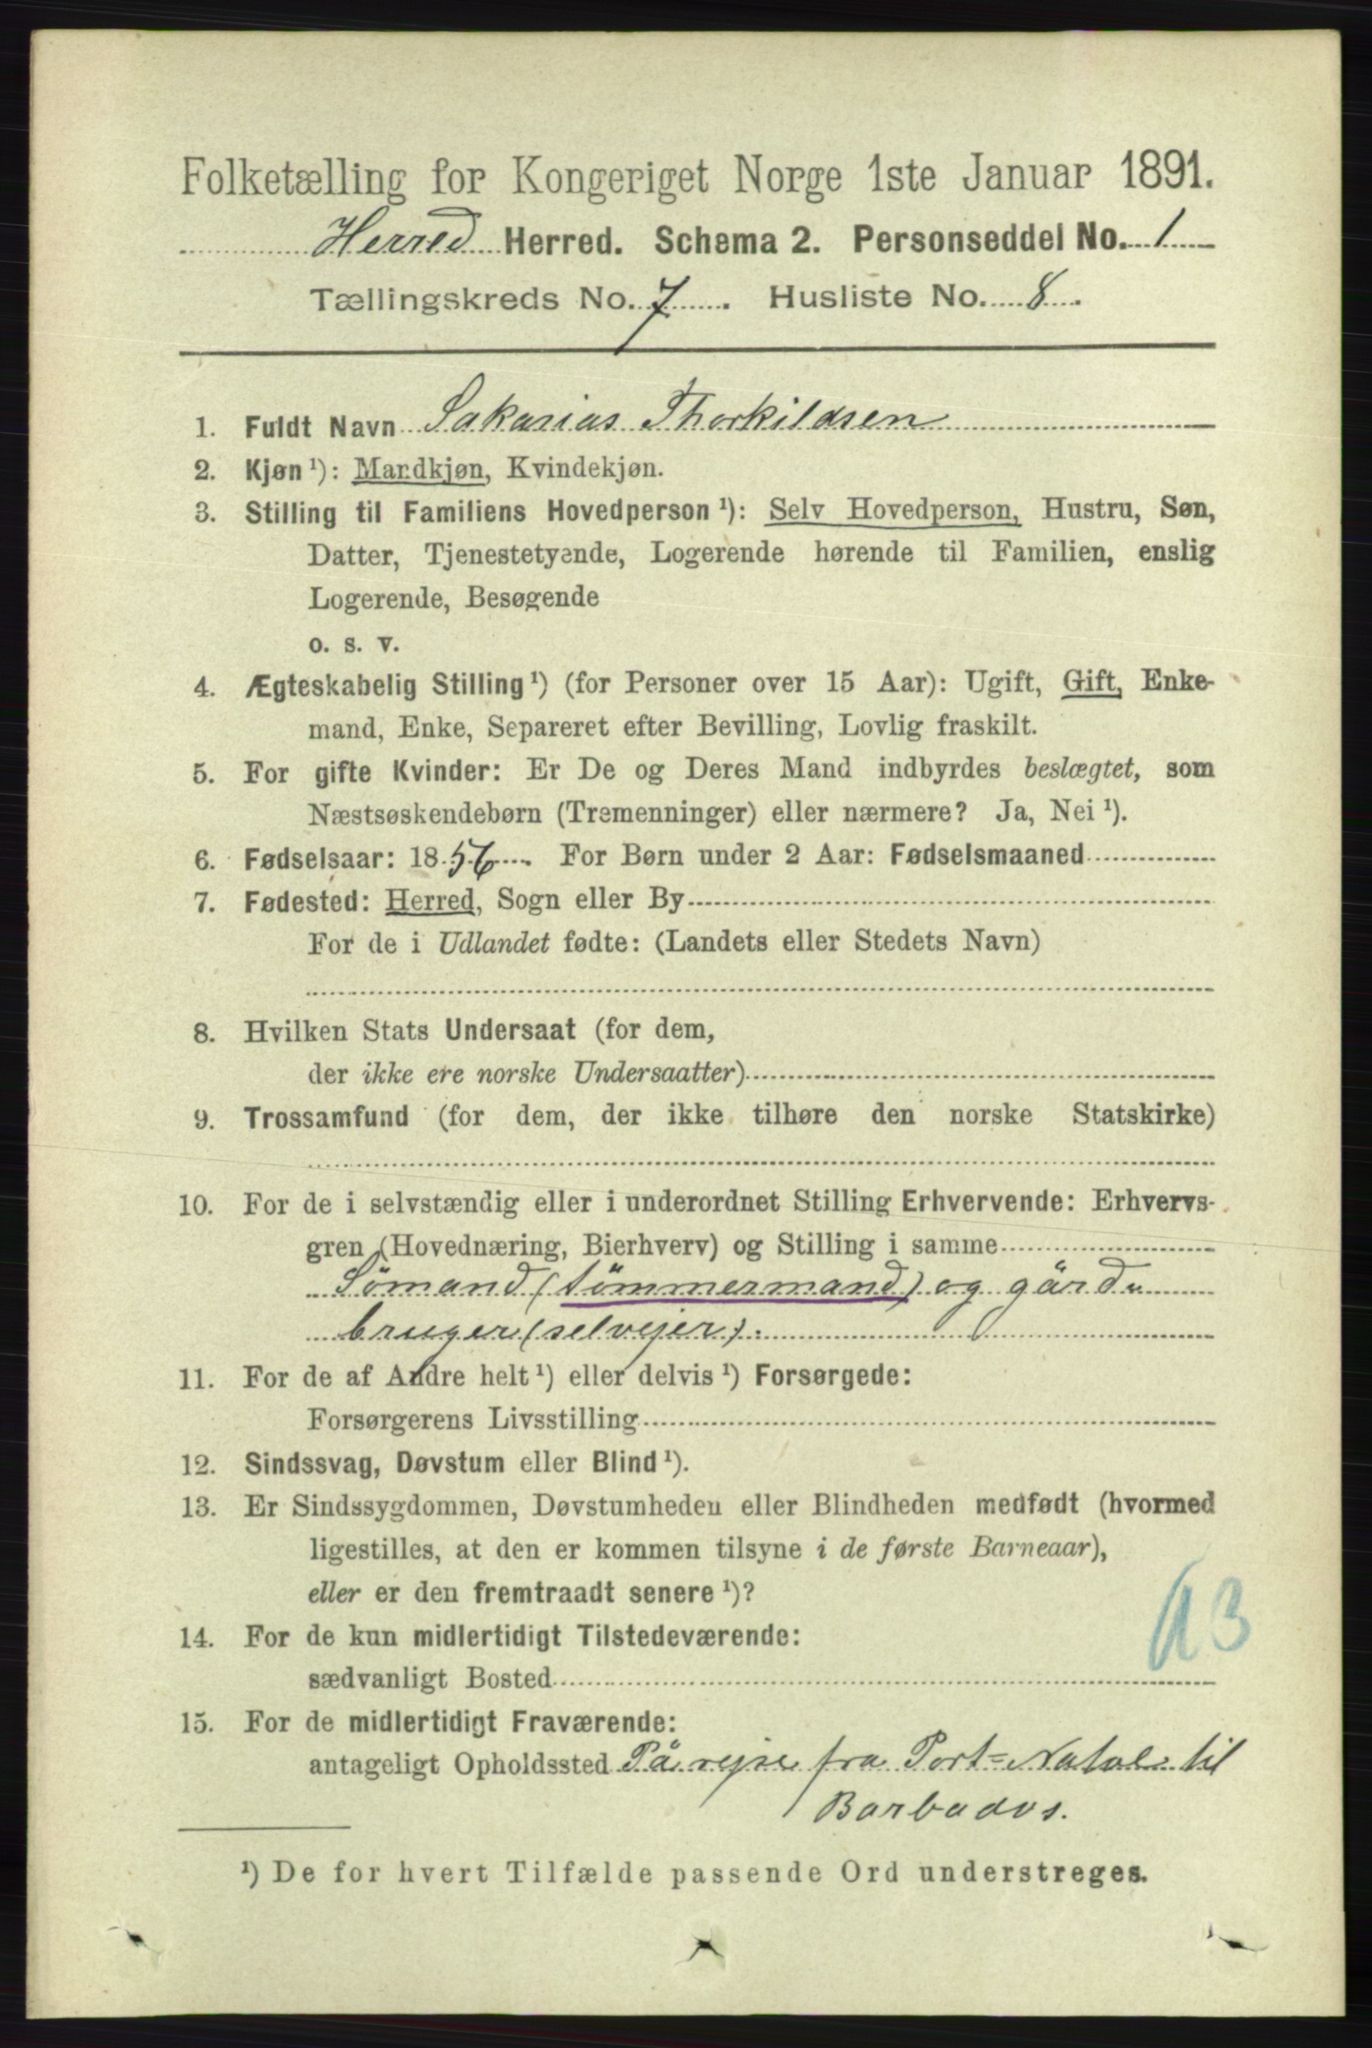 Folketælling for Kongeriget Norge 1ste Januar 1891.
Herred Herred. Schema 2. Personseddel No. 1
Tællingskreds No. 7. Husliste No. 8.
1. Fuldt Navn Sakarias Thorkildsen
2. Kjøn ¹): Mandkjøn, Kvindekjøn.
3. Stilling til Familiens Hovedperson ¹): Selv Hovedperson, Hustru, Søn,
Datter, Tjenestetyende, Logerende hørende til Familien, enslig
Logerende, Besøgende
o. s. v.
4. Ægteskabelig Stilling ¹) (for Personer over 15 Aar): Ugift, Gift, Enke-
mand, Enke, Separeret efter Bevilling, Lovlig fraskilt.
5. For gifte Kvinder: Er De og Deres Mand indbyrdes beslægtet, som
Næstsøskendebørn (Tremenninger) eller nærmere? Ja, Nei ¹).
6. Fødselsaar: 1856. For Børn under 2 Aar: Fødselsmaaned
7. Fødested: Herred, Sogn eller By
For de i Udlandet fødte: (Landets eller Stedets Navn)
8. Hvilken Stats Undersaat (for dem,
der ikke ere norske Undersaatter)
9. Trossamfund (for dem, der ikke tilhøre den norske Statskirke)
10. For de i selvstændig eller i underordnet Stilling Erhvervende: Erhvervs-
gren (Hovednæring, Bierhverv) og Stilling i samme
Sömand (tömmermand) og gård„
bruger (selvejer).
11. For de af Andre helt ¹) eller delvis ¹) Forsørgede:
Forsørgerens Livsstilling
12. Sindssvag, Døvstum eller Blind ¹).
13. Er Sindssygdommen, Døvstumheden eller Blindheden medfødt (hvormed
ligestilles, at den er kommen tilsyne i de første Barneaar),
eller er den fremtraadt senere ¹)?
14. For de kun midlertidigt Tilstedeværende:
sædvanligt Bosted
15. For de midlertidigt Fraværende:
antageligt Opholdssted På rejse fra Port=Natal til
Barbados.
¹) De for hvert Tilfælde passende Ord understreges.